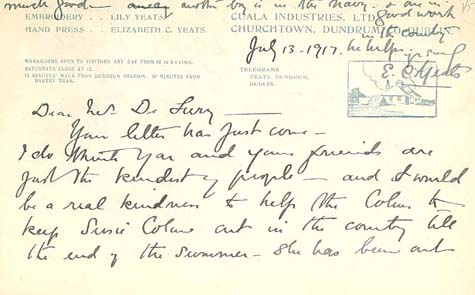 much good — another boy is in the Navy. & one in
EMBROIDERY . . LILY YEATS.
HAND PRESS . ELIZABETH C. YEATS.
CUALA INDUSTRIES, LTD
CHURCHTOWN, DUNDRUM, CO. DUBLIN.
good work
in the country
he helps
E. C. Yeats
July 13 - 1917.
WORKROOMS OPEN TO VISITORS ANY DAY FROM 10 to 5 o'clock.
SATURDAYS CLOSE AT 12.
MINUTES' WALK FROM DUNDRUM STATION. 20 MINUTES FROM
DARTRY TRAM.
TELEGRAMS
YEATS, DUNDRUM,
DUBLIN.
Dear Mrs De Lury —
Your letter has just come —
I do think you and your friends are
just the kindest of people — and it would
be a real kindness to help the Colums to
keep Susie Colum out in the country till
the end of the summer — she has been out